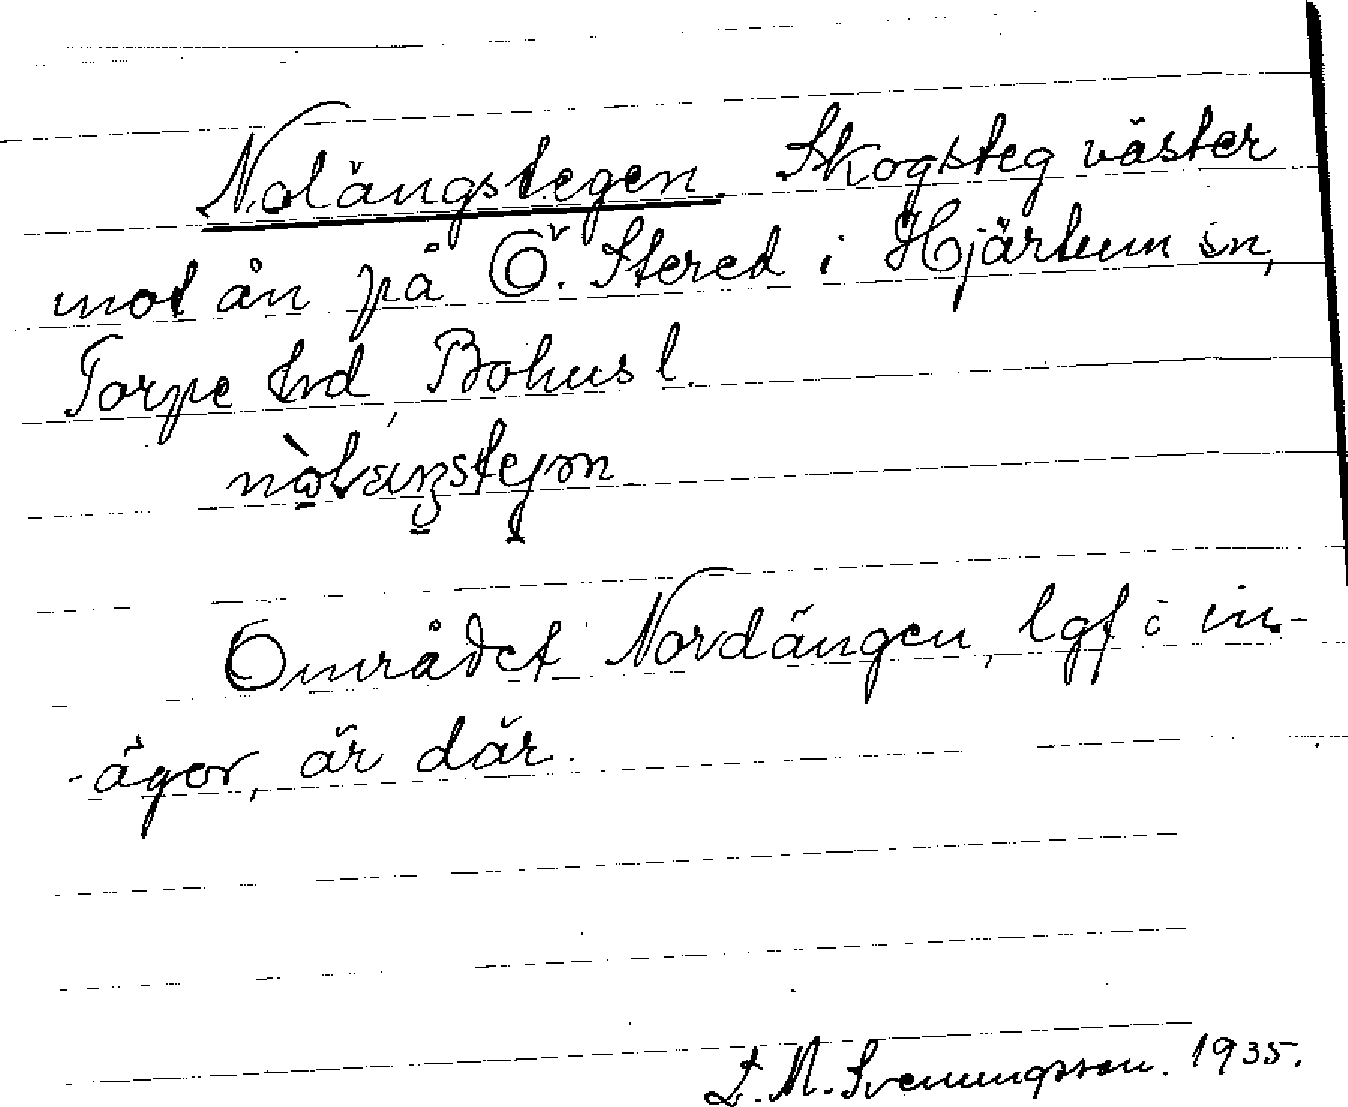 Nolängstegen Skogsteg väster
mot ån på Ö. Stered i Hjärtum sn,
Torpe hd, Bohusl.
Området Nordängen, lgf i in-
-ägor, är där.
S. M. Svenungsson. 1935.